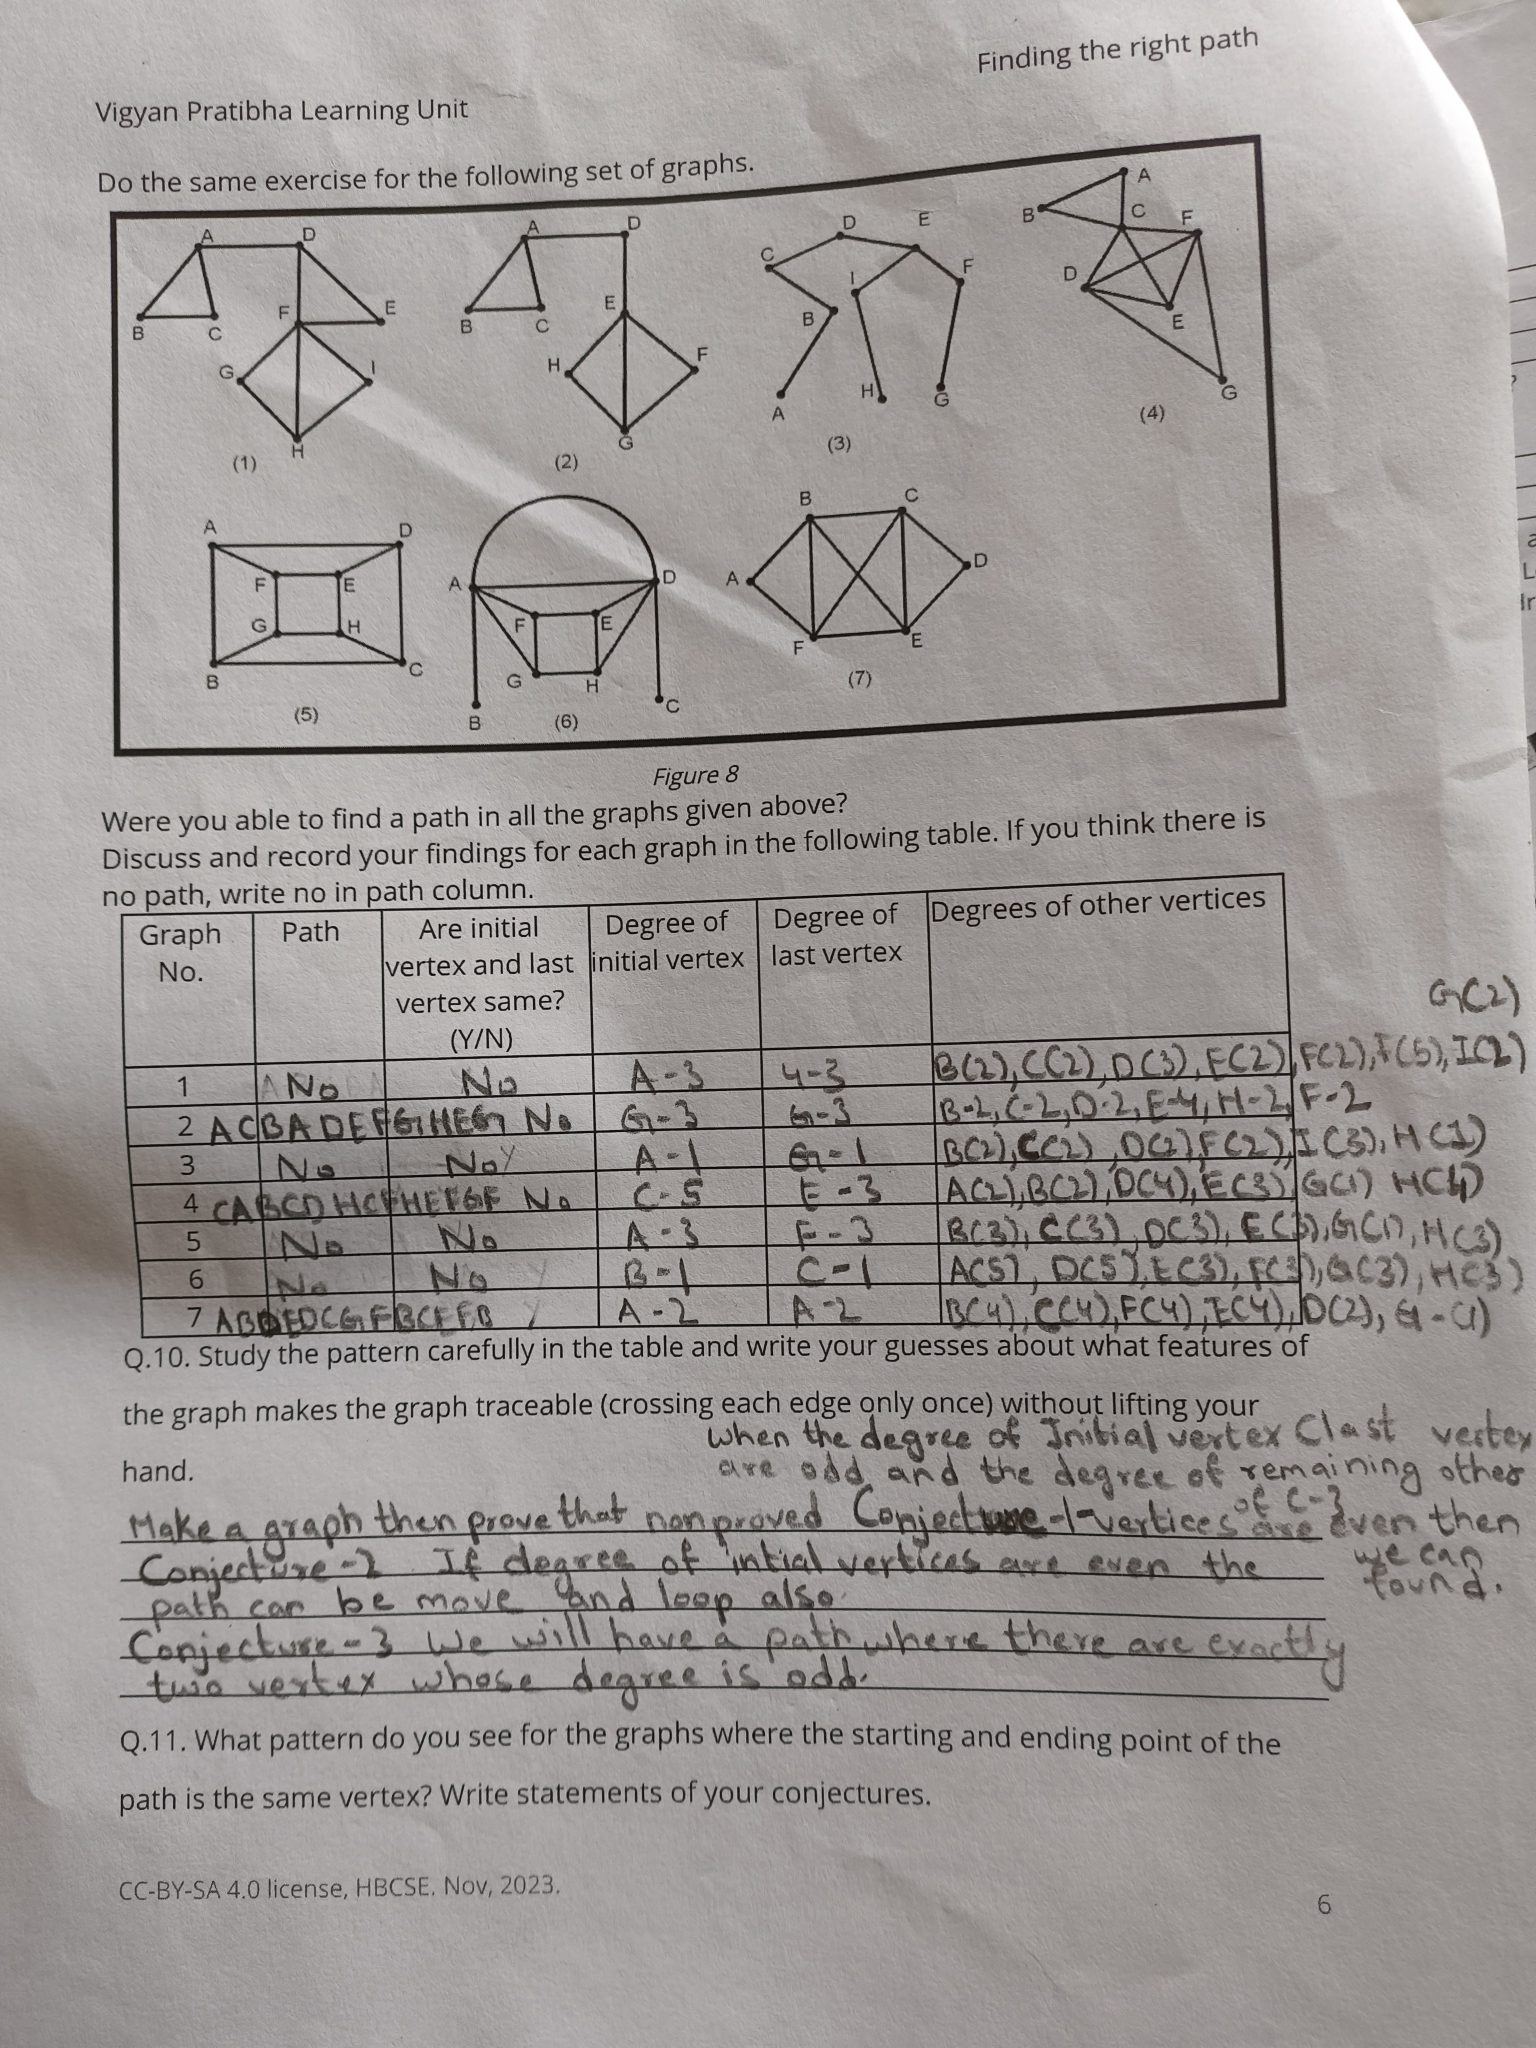 Finding the right path
Vigyan Pratibha Learning Unit
Do the same exercise for the following set of graphs.
A D B C F E G I H (1)
A D B C E H F G (2)
C D E I F B A H G (3)
A B C F D E G (4)
A D F E G H B C (5)
A D F E G H B C (6)
B C A D F E (7)
Figure 8
Were you able to find a path in all the graphs given above?
Discuss and record your findings for each graph in the following table. If you think there is
no path, write no in path column.
Graph No. Path Are initial vertex and last vertex same? (Y/N) Degree of initial vertex Degree of last vertex Degrees of other vertices
G(2)
1 No No A-3 4-3 B(2), C(2), D(3), E(2), F(2), F(5), I(2)
2 ACBADEFGHEG No G-3 G-3 B-2, C-2, D-2, E-4, H-2, F-2
3 No No Y A-1 G-1 B(2), C(2), D(2), F(2), I(3), H(1)
4 No C-5 E-3 A(2), B(2), D(4), E(3), G(1) H(4)
5 No No A-3 F-3 B(3), C(3), D(3), E(3), G(1), H(3)
6 No No B-1 C-1 A(5), D(5), E(3), F(3), G(3), H(3)
7 Y A-2 A-2 B(4), C(4), F(4), E(4), D(2), G-(1)
Q.10. Study the pattern carefully in the table and write your guesses about what features of
the graph makes the graph traceable (crossing each edge only once) without lifting your
hand.
when the degree of Initial vertex Clast vertex
are odd and the degree of remaining other
of C-3
Make a graph then prove that nonproved Conjecture-1-vertices are even then
we can
found.
Conjecture-2 If degree of intial vertices are even the
path can be move and loop also.
Conjecture-3 We will have a path where there are exactly
two vertex whose degree is odd.
Q.11. What pattern do you see for the graphs where the starting and ending point of the
path is the same vertex? Write statements of your conjectures.
CC-BY-SA 4.0 license, HBCSE. Nov, 2023.
6